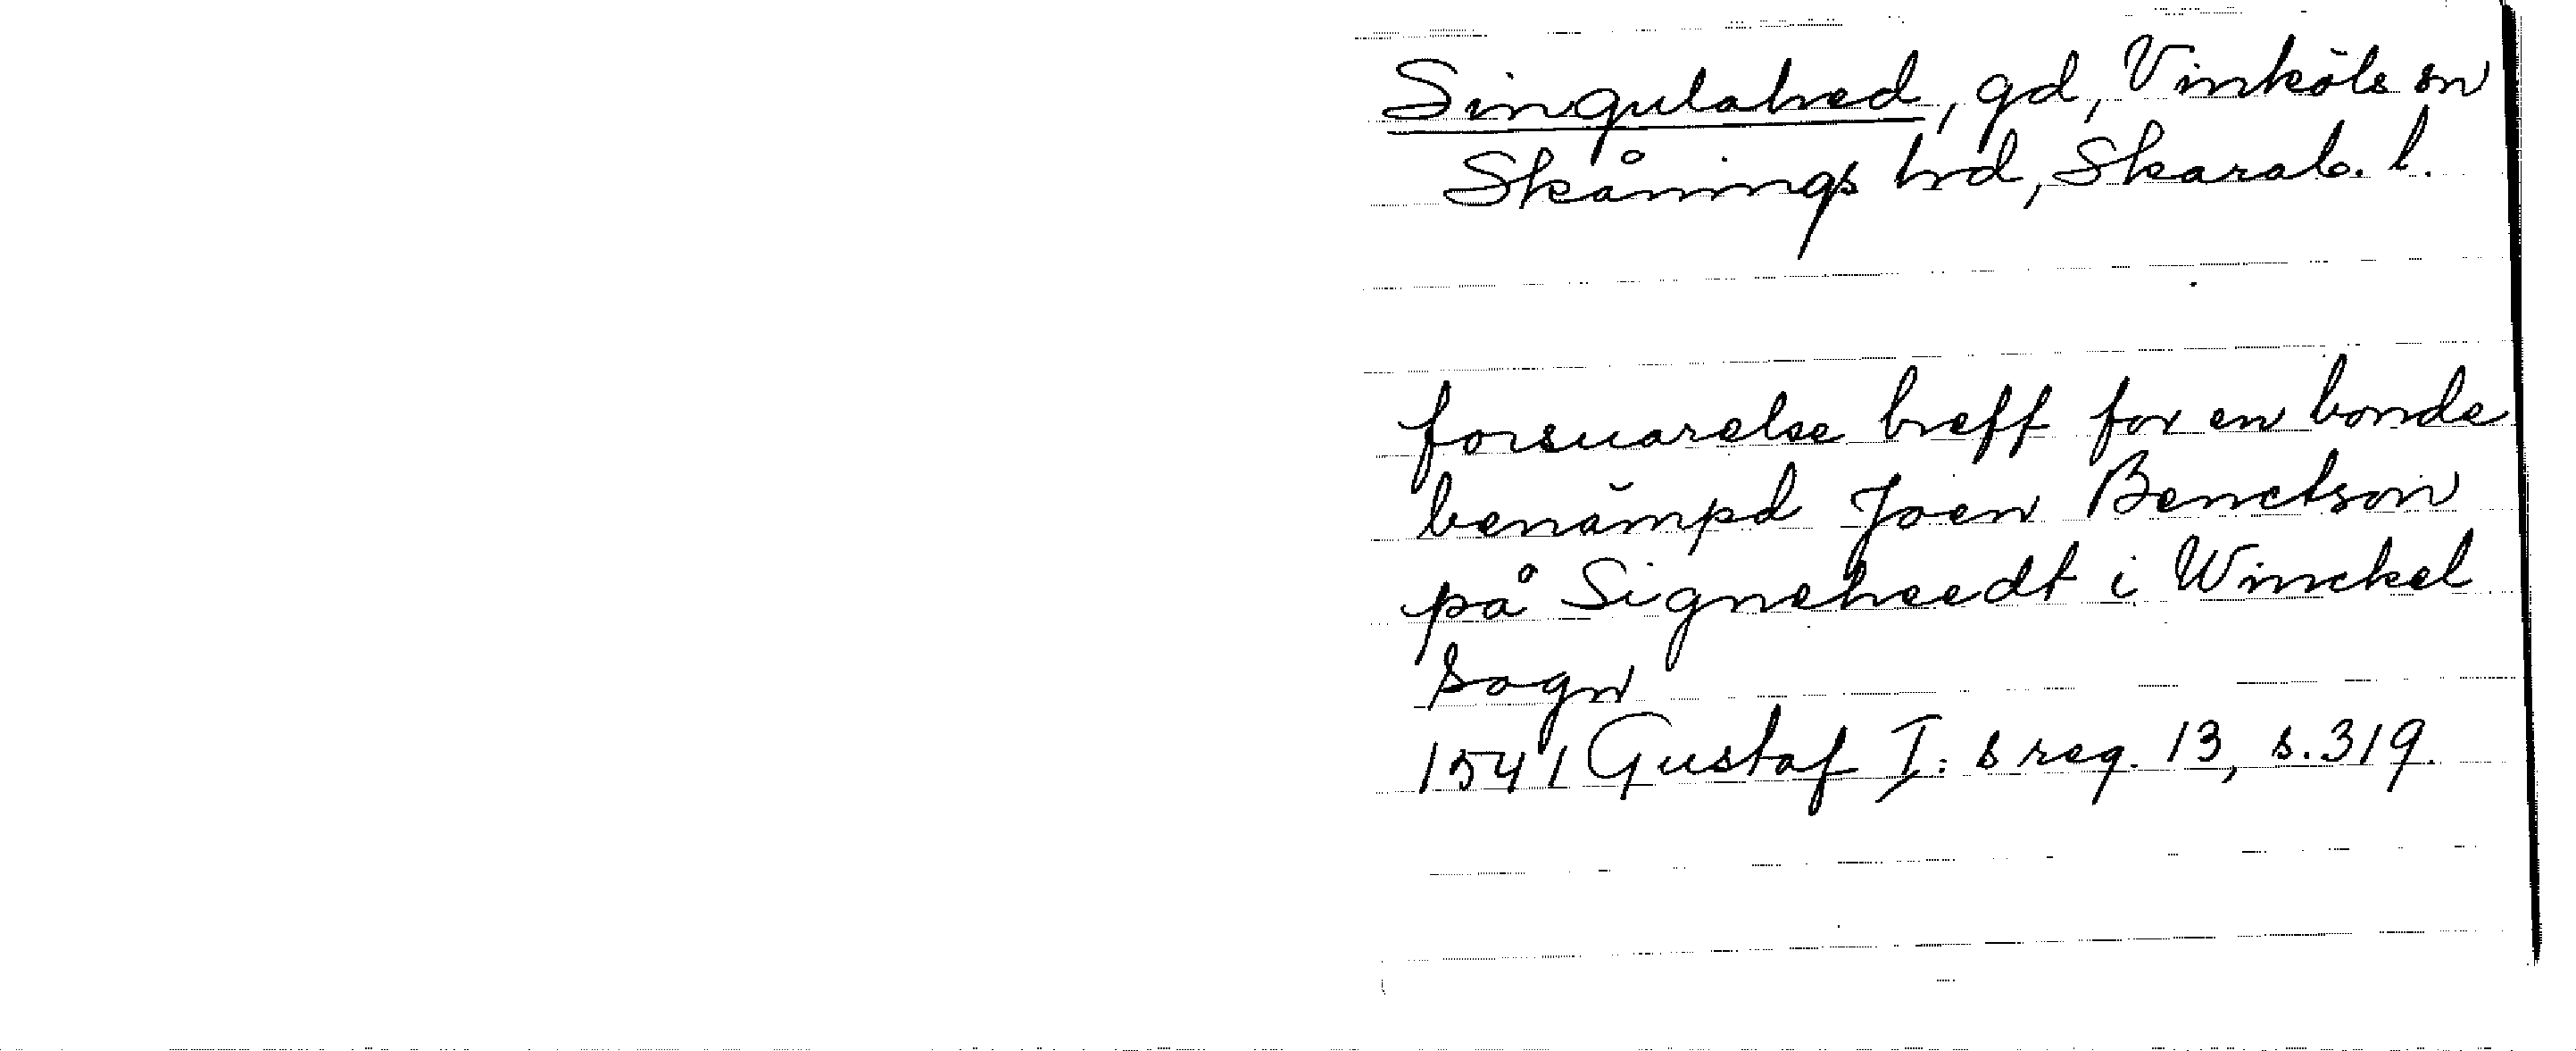 Singulahed, gd, Vinköls sn
Skånings hd, Skarab. l.
forsuarelse breff for en bonde
benämpd Joen Benctson
på Signeheedt i Winckel
sogn
1541 Gustaf I:s reg. 13, s. 319.